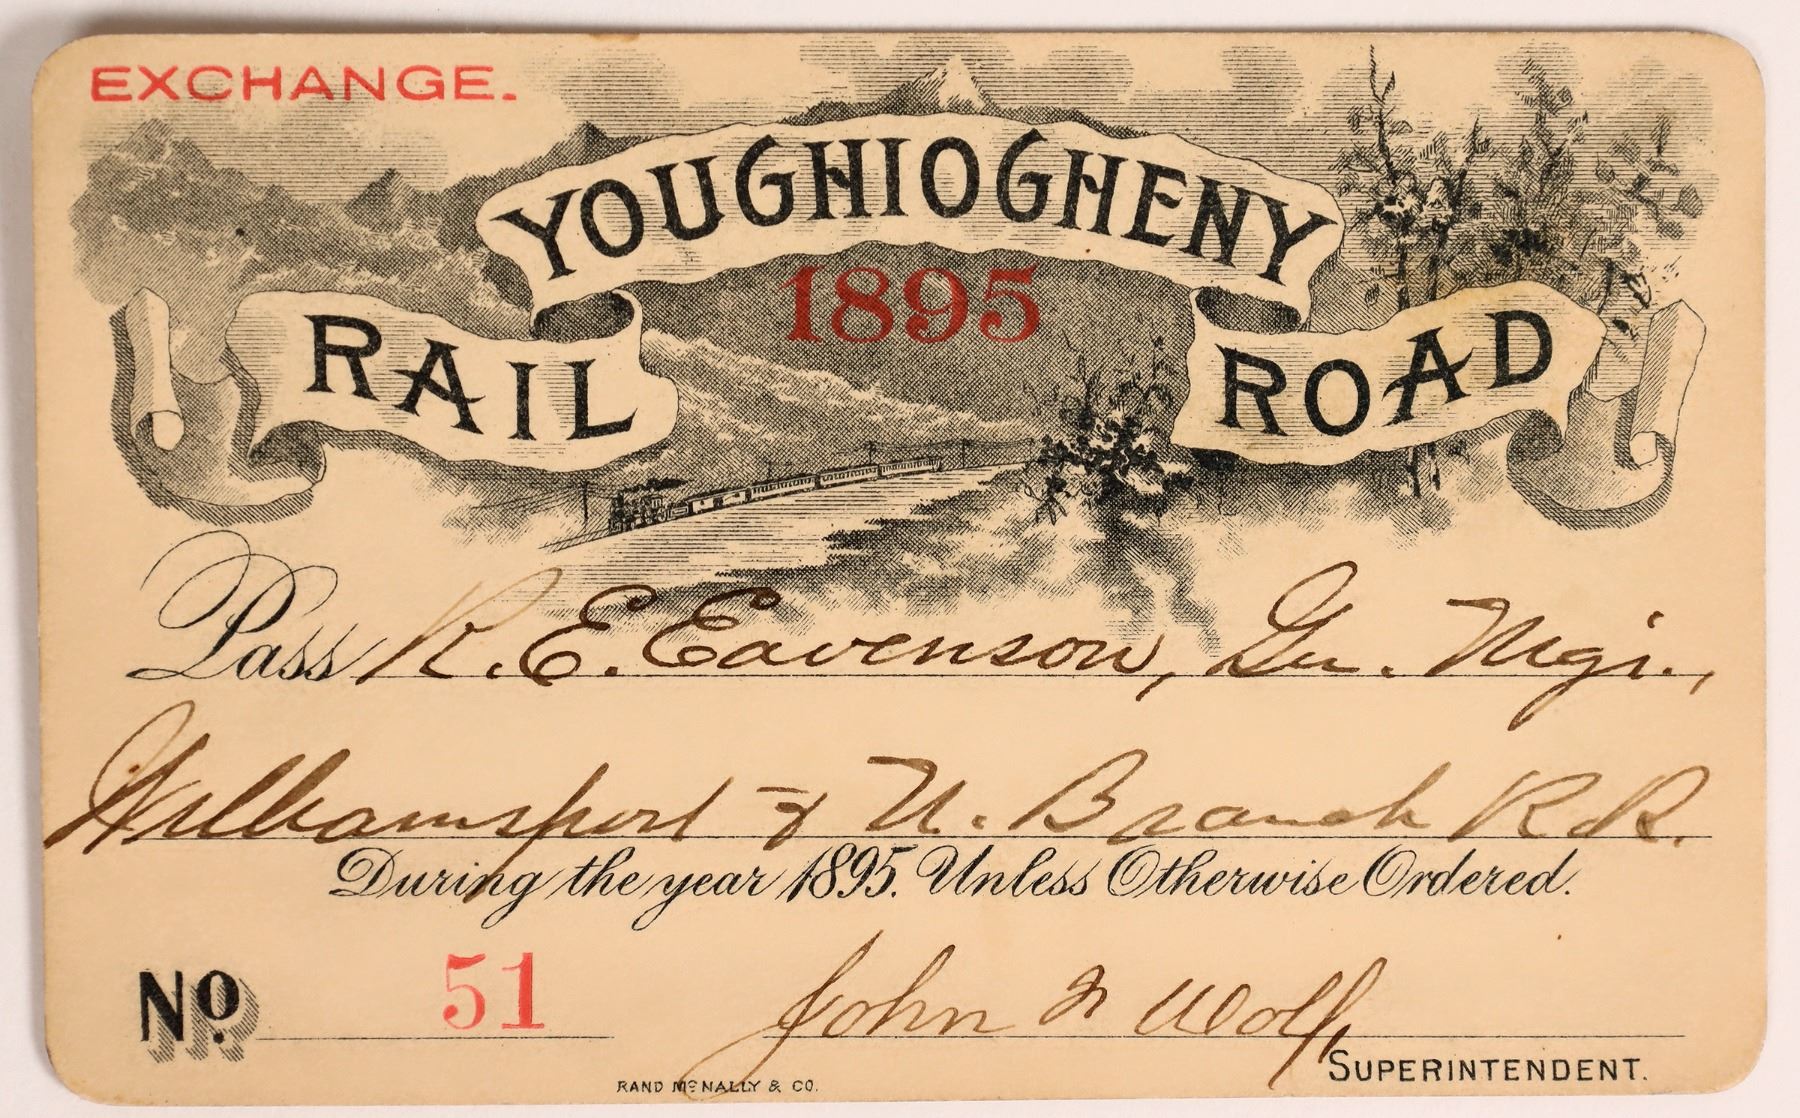 EXCHANGE.
YOUGHIOGHENY
1895
RAIL ROAD
Pass R. E. Eavenson, Gn. Mgr.,
Williamsport & N. Branch R. R.
During the year 1895. Unless Otherwise Ordered.
No 51 John F Wolf,
SUPERINTENDENT.
RAND MCNALLY & CO.